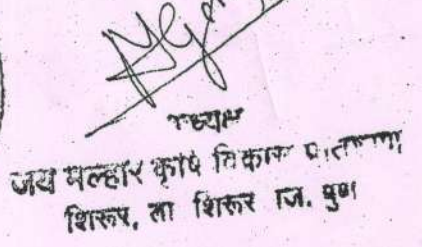 अध्यक्ष
जय मल्हार कृषि विकास प्रतिष्ठान
शिरूर, ता शिरूर जि. पुणे